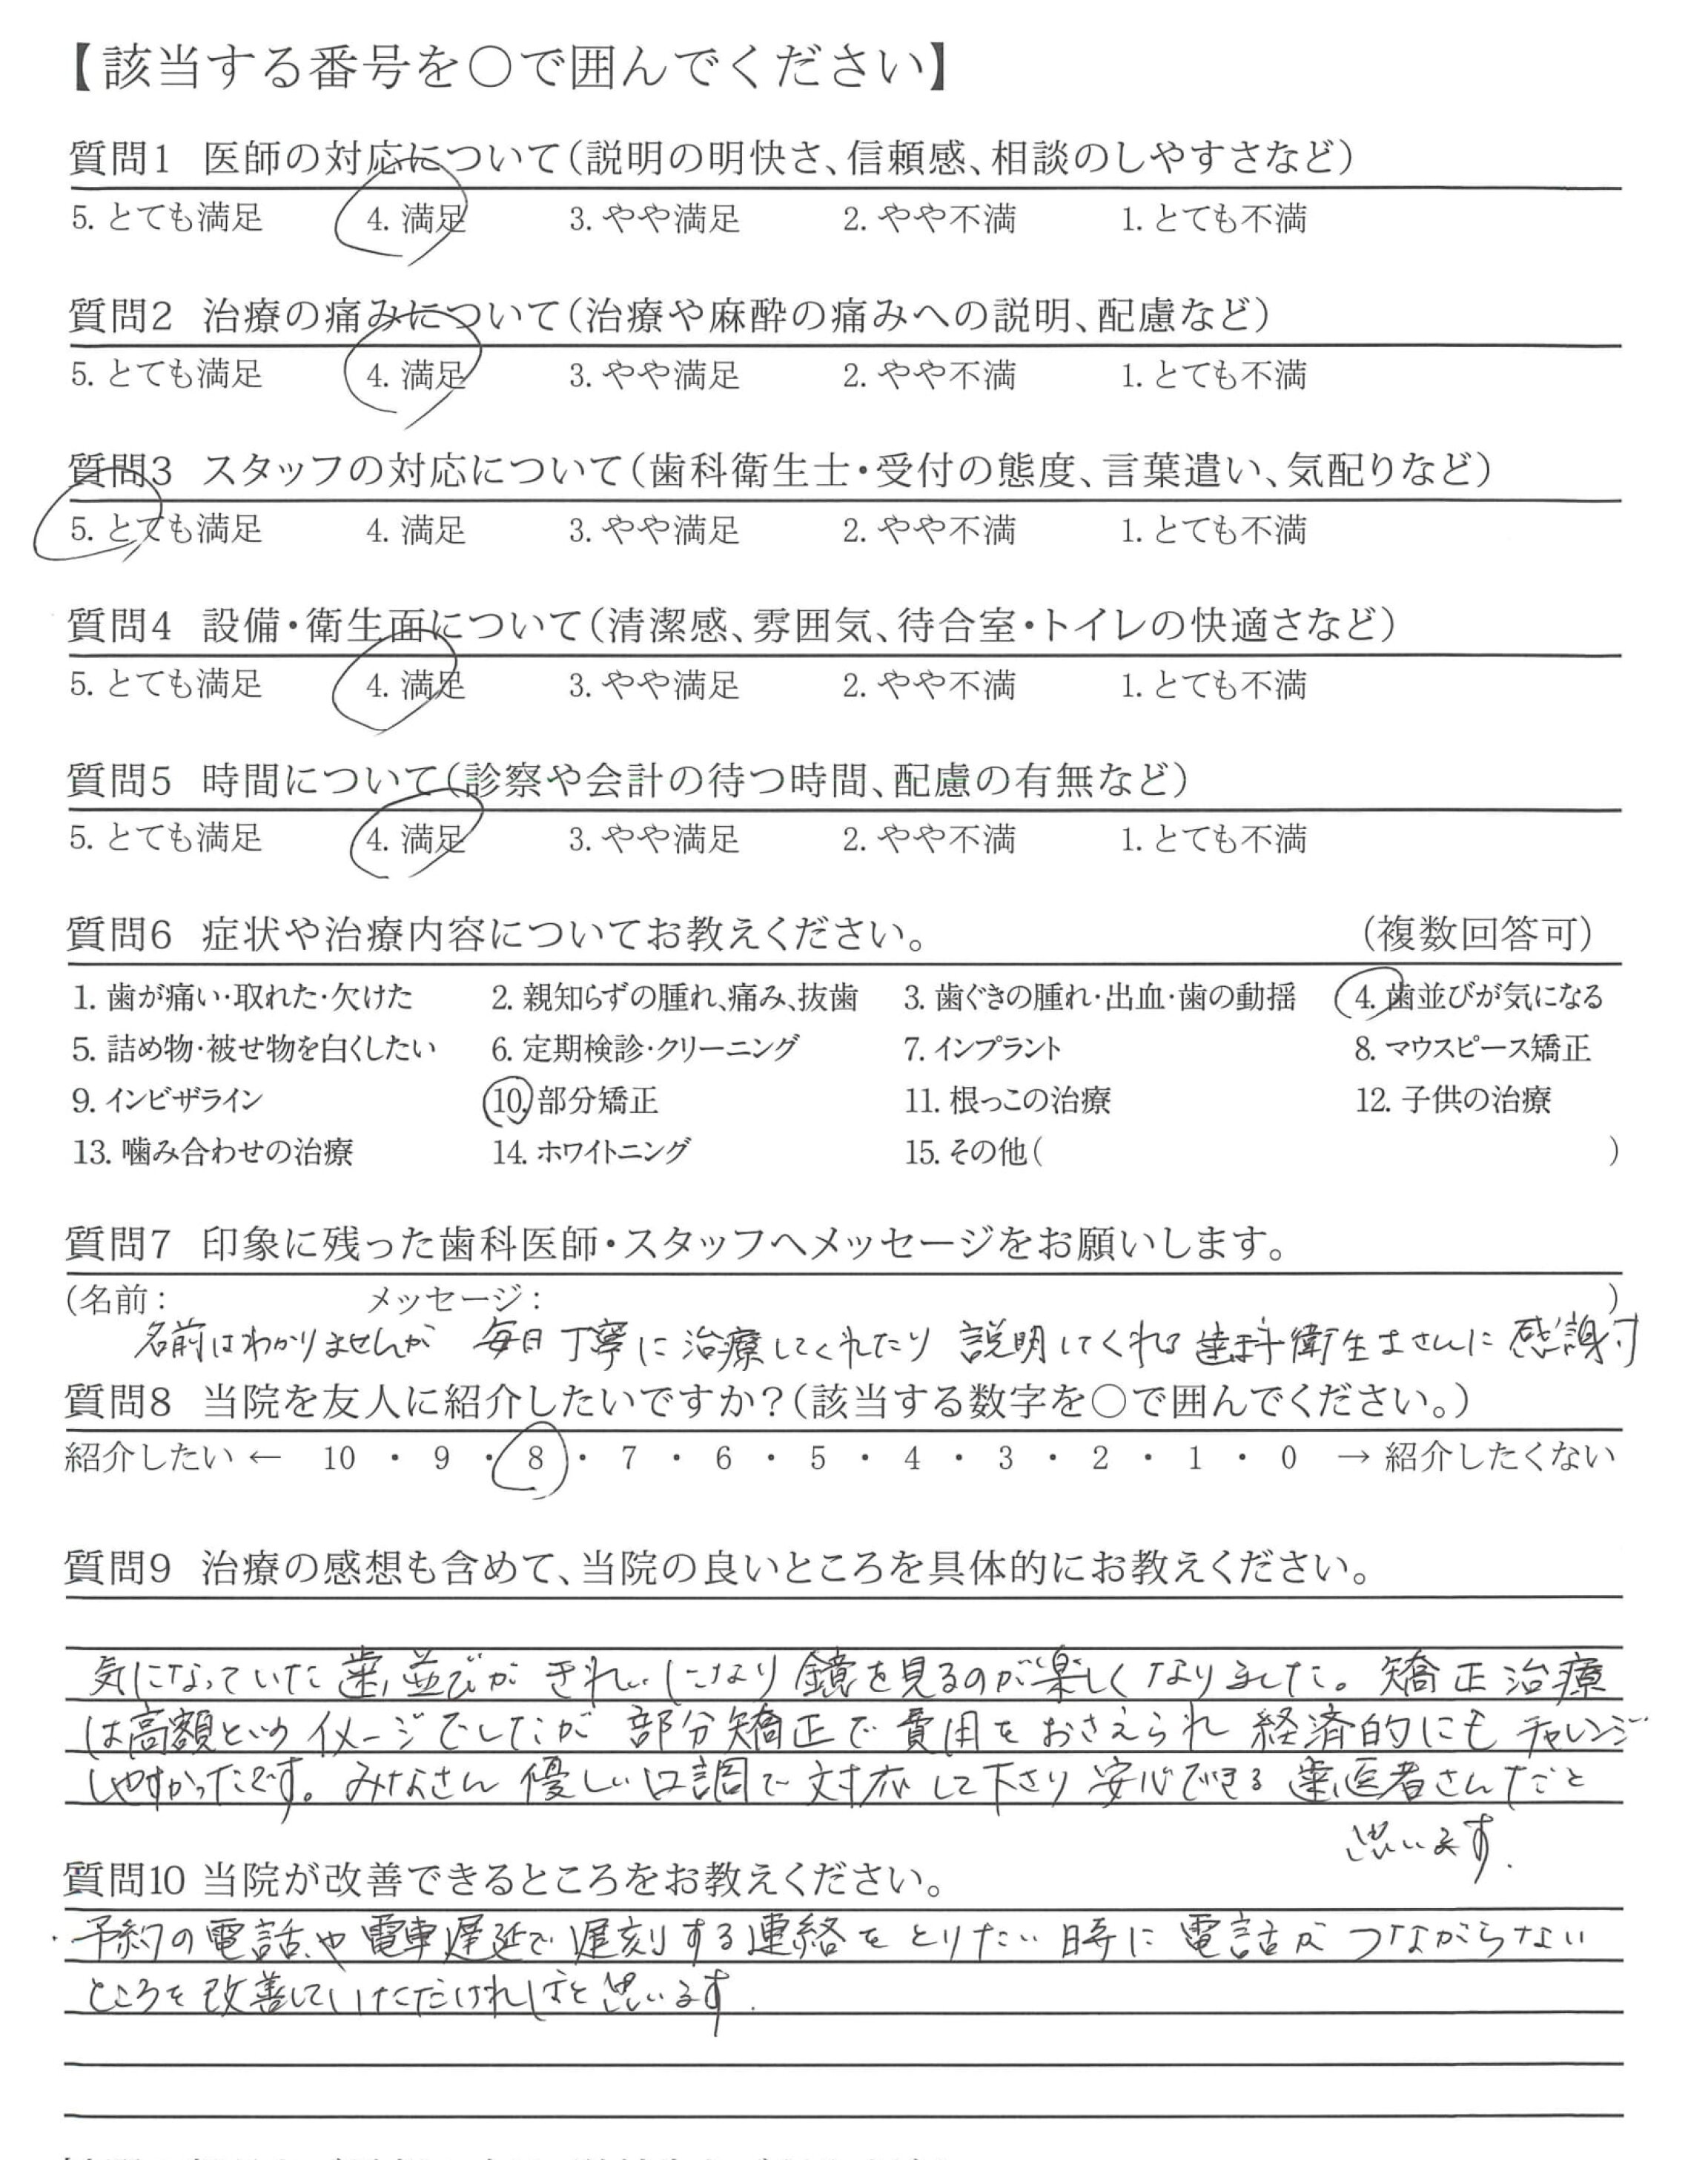 【該当する番号を○で囲んでください】
質問1 医師の対応について(説明の明快さ、信頼感、相談のしやすさなど)
5. とても満足 4. 満足 3. やや満足 2. やや不満 1. とても不満
質問2 治療の痛みについて(治療や麻酔の痛みへの説明、配慮など)
5. とても満足 4. 満足 3. やや満足 2. やや不満 1. とても不満
質問3 スタッフの対応について(歯科衛生士・受付の態度、言葉遣い、気配りなど)
5. とても満足 4. 満足 3. やや満足 2. やや不満 1. とても不満
質問4 設備・衛生面について(清潔感、雰囲気、待合室・トイレの快適さなど)
5. とても満足 4. 満足 3. やや満足 2. やや不満 1. とても不満
質問5 時間について(診察や会計の待つ時間、配慮の有無など)
5. とても満足 4. 満足 3. やや満足 2. やや不満 1. とても不満
質問6 症状や治療内容についてお教えください。 (複数回答可)
1. 歯が痛い・取れた・欠けた 2. 親知らずの腫れ、痛み、抜歯 3. 歯ぐきの腫れ・出血・歯の動揺 4. 歯並びが気になる
5. 詰め物・被せ物を白くしたい 6. 定期検診・クリーニング 7. インプラント 8. マウスピース矯正
9. インビザライン 10. 部分矯正 11. 根っこの治療 12. 子供の治療
13. 噛み合わせの治療 14. ホワイトニング 15. その他( )
質問7 印象に残った歯科医師・スタッフへメッセージをお願いします。
(名前： メッセージ： )
名前はわかりませんが 毎日 丁寧に 治療してくれたり 説明してくれる 歯科衛生士さんに 感謝す
質問8 当院を友人に紹介したいですか？(該当する数字を○で囲んでください。)
紹介したい ← 10 ・ 9 ・ 8 ・ 7 ・ 6 ・ 5 ・ 4 ・ 3 ・ 2 ・ 1 ・ 0 → 紹介したくない
質問9 治療の感想も含めて、当院の良いところを具体的にお教えください。
気になっていた 歯並びが きれいになり 鏡を見るのが楽しくなりました。 矯正治療
は高額というイメージでしたが 部分矯正で 費用をおさえられ 経済的にも チャレンジ
しやすかったです。 みなさん 優しい口調で 対応して下さり 安心できる 歯医者さんだと
思います.
質問10 当院が改善できるところをお教えください。
・予約の電話や 電車遅延で 遅刻する連絡をとりたい 時に 電話が つながらない
ところを 改善していただければと思います.